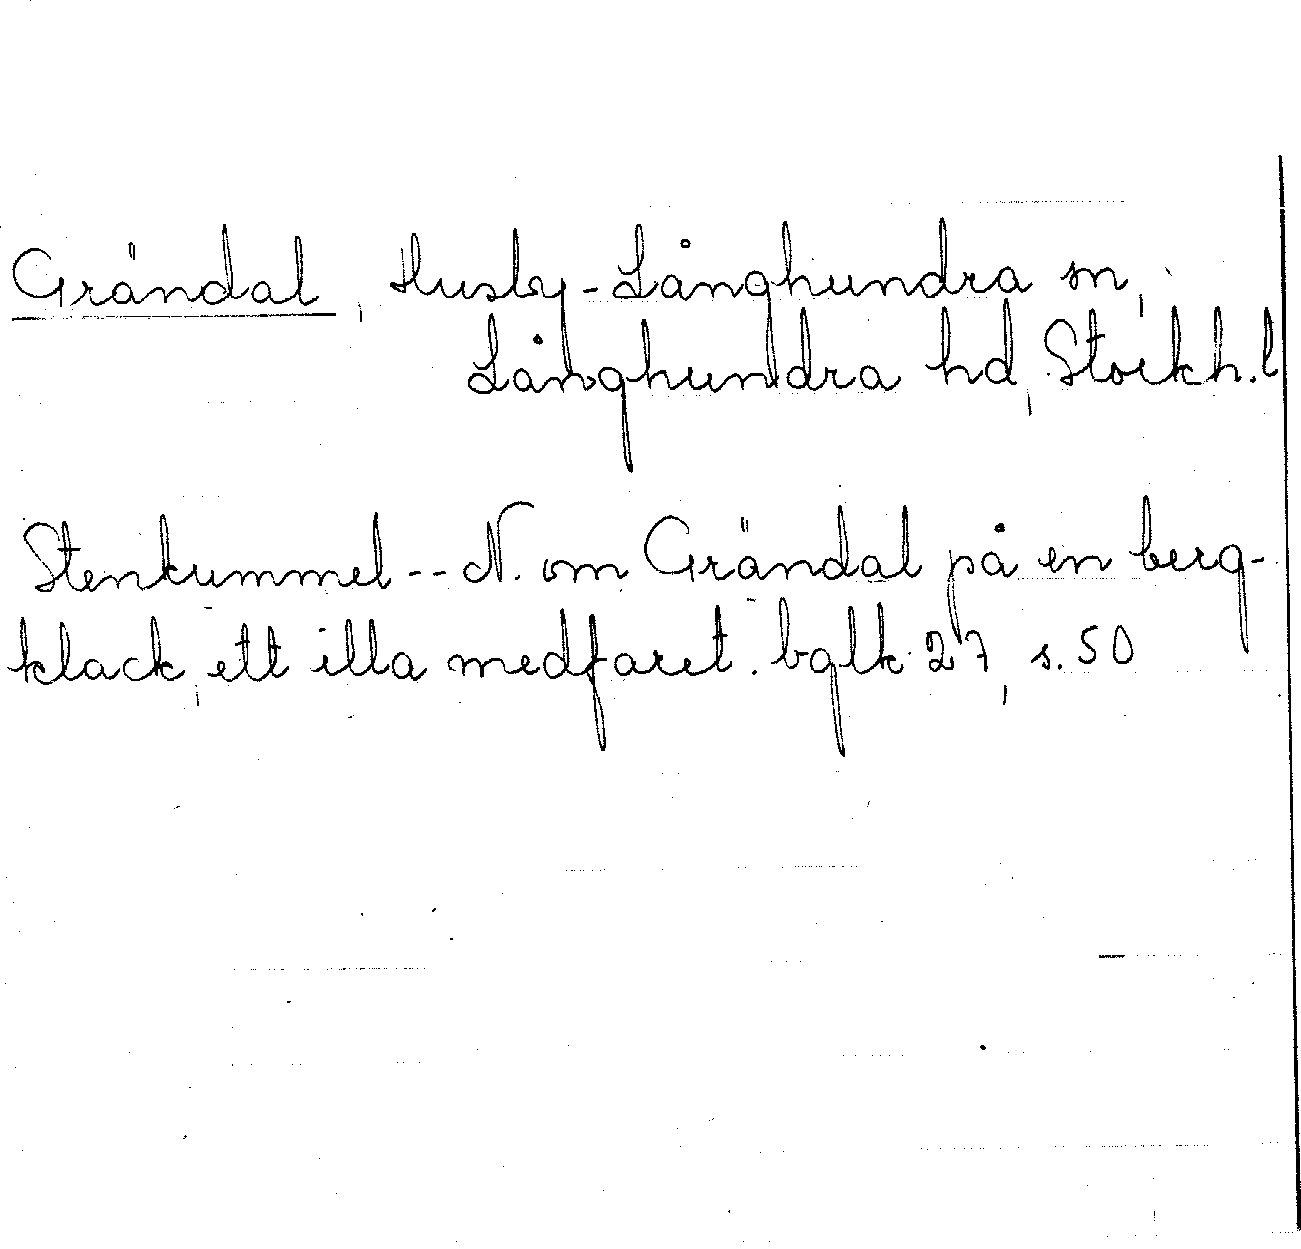 Grändal, Husby-Långhundra sn,
Långhundra hd, Stockh. l
Stenkummel -- N. om Grändal på en berg-
klack, ett illa medfaret. bglk 27, s. 50